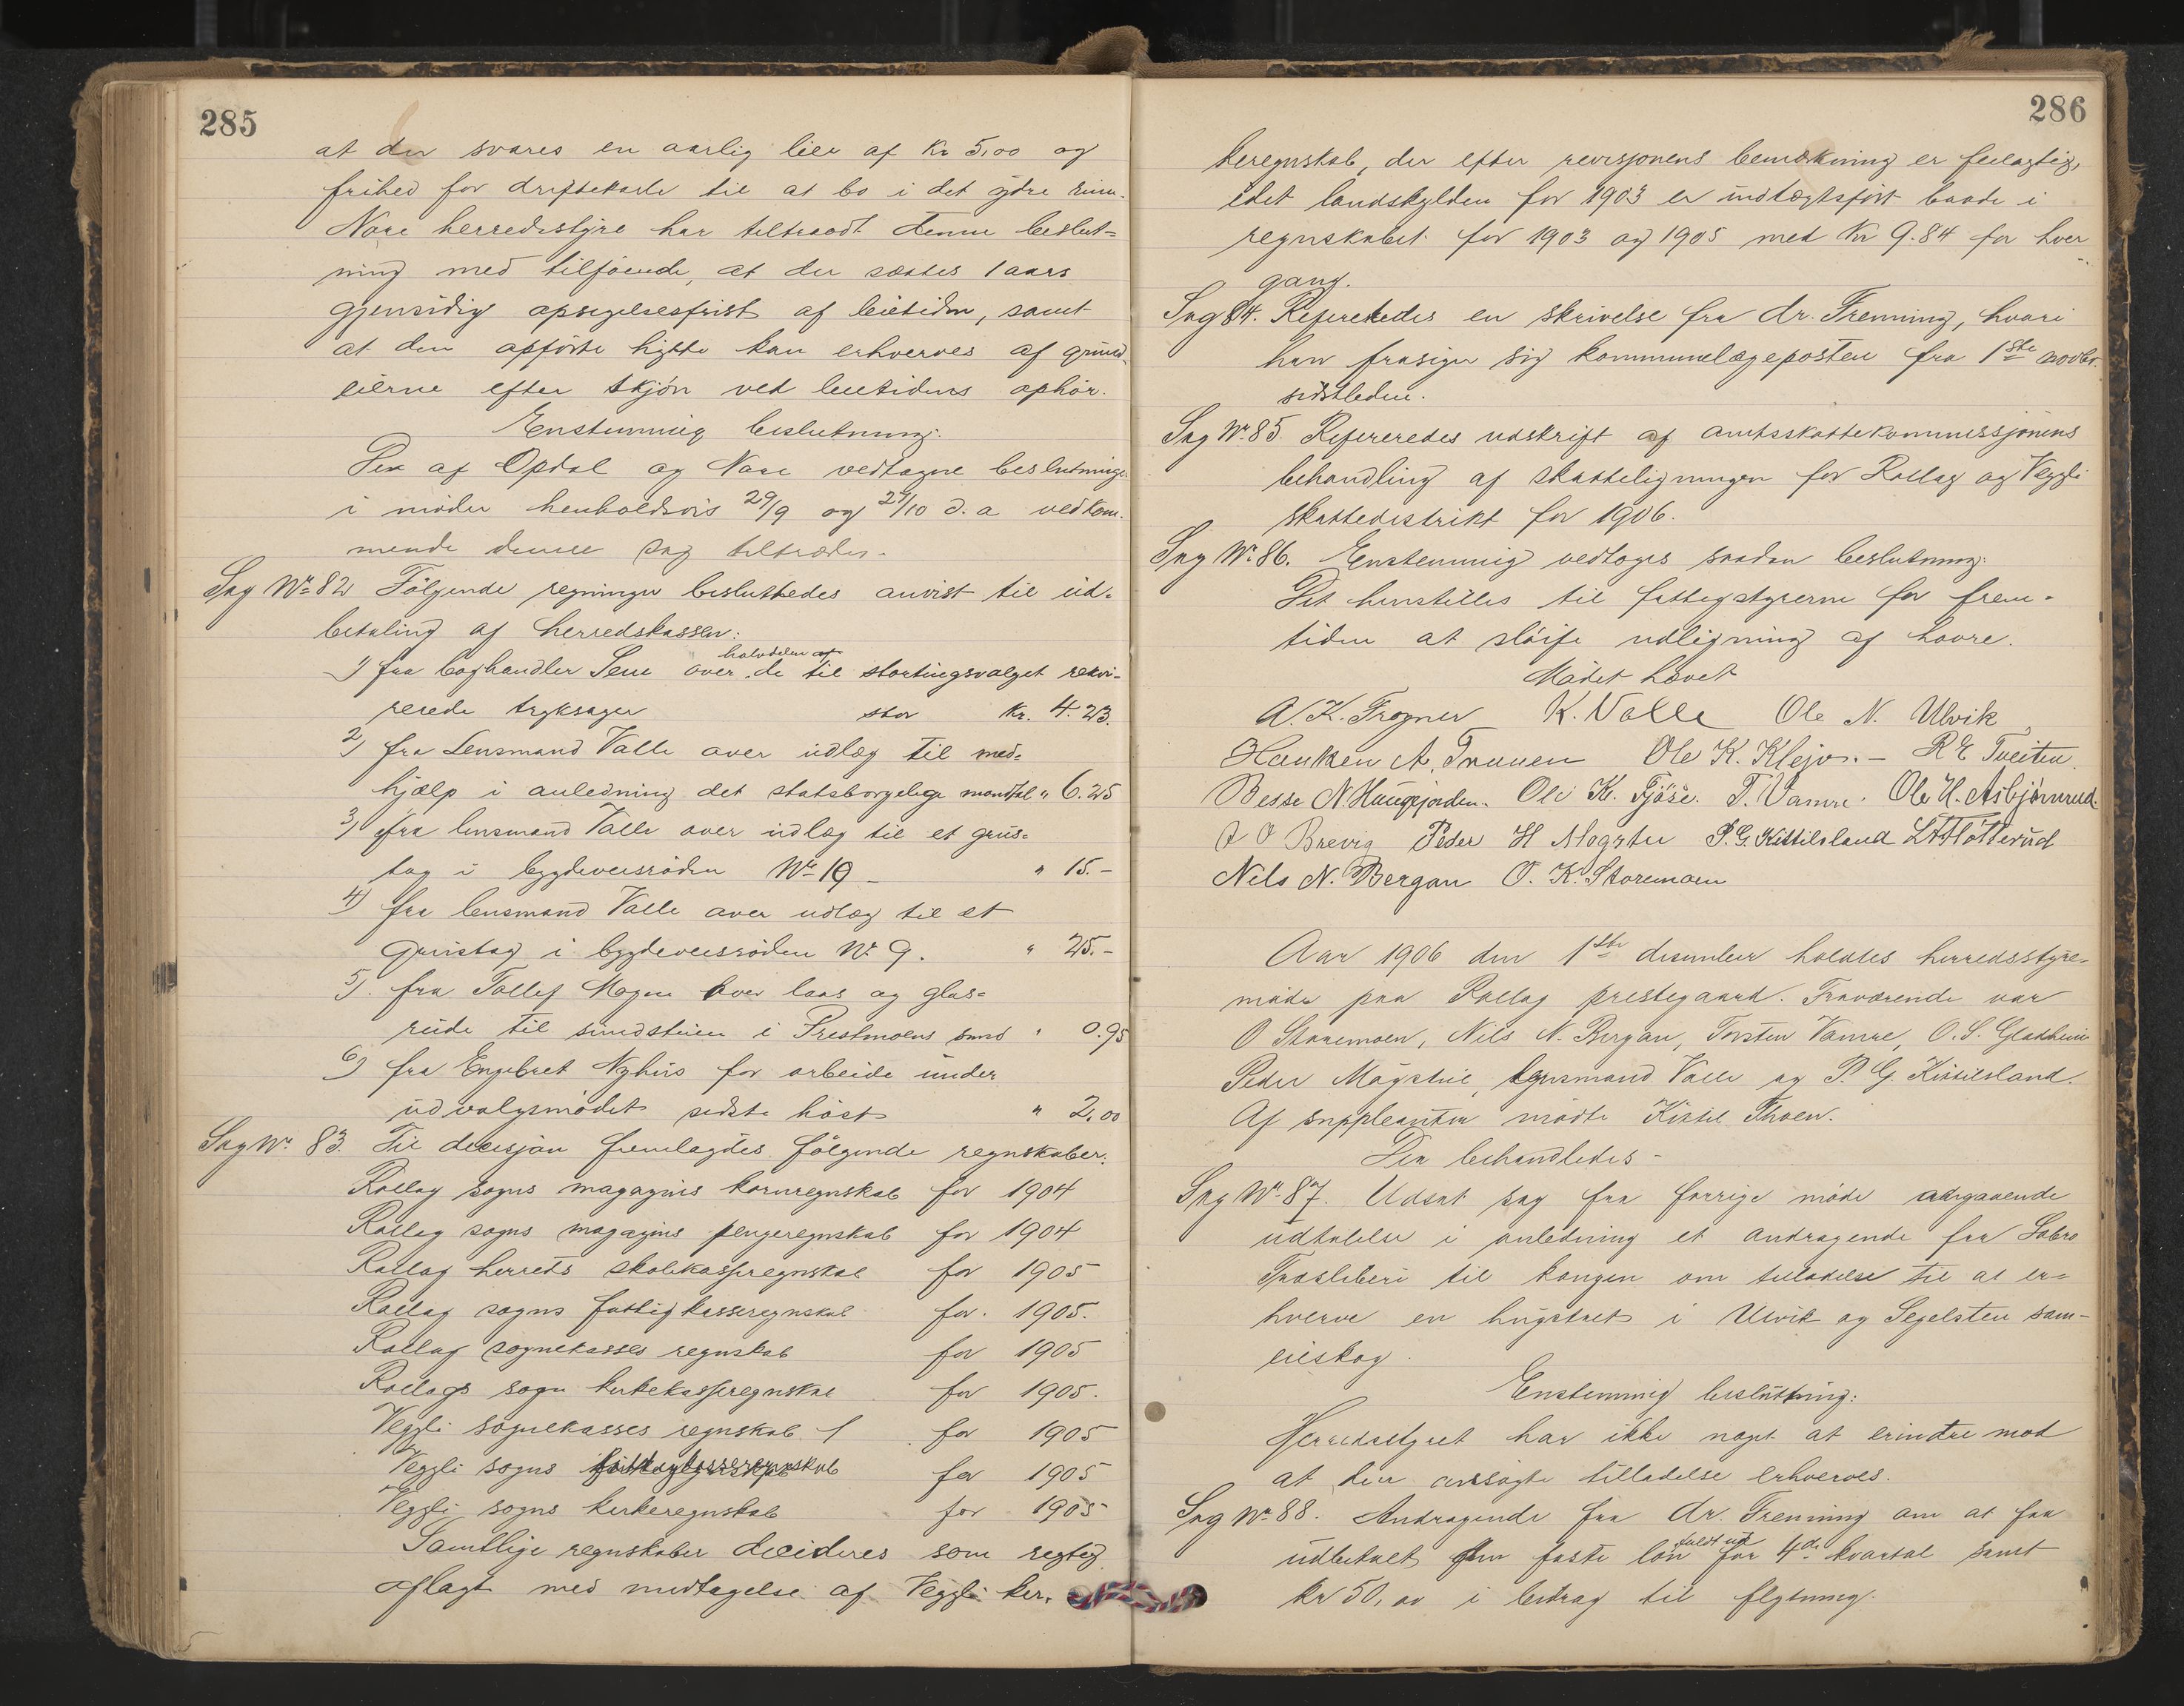 285
at der svares en aarlig leie af Kr 5,00 og
frihed for driftekarle til at bo i det ydre rum.
Nore herredsstyre har tiltraadt denne beslut=
ning med tilföiende, at der sættes 1 aars
gjensidig opsigelsesfrist af leietiden, samt
at den opförte hytte kan erhverves af grund
eierne efter skjön ved leietidens ophör.
Enstemmig beslutning:
De af Opdal og Nore vedtagne beslutninger
i möder henholdsvis 29/9 og 27/10 d. a vedkom.
mende denne sag tiltrædes.
Sag No 82 Fölgende regninger besluttedes anvist til ud=
betaling af herredskassen:
1) fra boghandler Sem over halvdelen af de til stortingsvalget rekvi=
rerede tryksager stor Kr. 4.23.
2) fra Lensmand Valle over udlæg til med=
hjælp i anledning det statsborgelige mandtal " 6.25
3) fra lensmand Valle over udlæg til et grus=
tag i bygdeveisroden No 19 - " 15.-
4) fra lensmand Valle over udlæg til et
grustag i bygdeveisroden No 9. " 25.-
5). fra Tollef Mogne over laas og glas=
rude til sundstuen i Prestmoens sund " 0.95
6) fra Engebret Nyhus for arbeide under
udvalgsmödet sidste höst " 2,00
Sag No 83. Til decisjon fremlagdes fölgende regnskaber:
Rollag sogns magazins kornregnskab for 1904
Rollag sogns magazins pengeregnskab for 1904
Rollag herreds skolekasseregnskab for 1905
Rollag sogns fattigkasseregnskab for. 1905.
Rollag sognekasses regnskab for 1905
Rollags sogn kirkekasseregnskab for 1905.
Veggli sognekasses regnskab for 1905
Veggli sogns fattigkasseregnskab for 1905
Veggli sogns kirkeregnskab for 1905
Samtlige regnskaber decideres som regtig
aflagt med undtagelse af Veggli kir.
286
keregnskab, der efter revisjonens bemærkning er feilagtig,
idet landskylden for 1903 er indtægtsfört baade i
regnskabet for 1903 og 1905 med Kr 9.84 for hver
gang.
Sag 84. Refereredes en skrivelse fra dr. Frenning, hvori
han frasiger sig kommunelægeposten fra 1ste novbr.
sidstleden.
Sag No 85. Refereredes udskrift af amtsskattekommissjonens
behandling af skatteligningen for Rollag og Veggli
skattedistrikt for 1906.
Sag No 86. Enstemmig vedtoges saadan beslutning:
Det henstilles til fattigstyrerne for frem=
tiden at slöife udligning af havre.
Mödet hævet
A. K. Frogner K. Valle Ole N. Ulvik
Haaken A. Traaen Ole K. Klejv. - R E Tveiten
Besse N. Haugejorden. Ole K. Fjöse. T. Vamre. Ole H. Asbjörnrud.
O Brevig Peder H Mogster P. G. Kittilsland
Nils N. Bergan O. K. Storemoen
Aar 1906 den 1ste desember holdtes herredsstyre=
möde paa Rollag prestegaard. Fraværende var
O Storemoen, Nils N. Bergan, Torsten Vamre, O. S. Gladheim
Peder Mögstue, lensmand Valle og P. G. Kittilsland.
Af suppleanter mödte Kittil Thoen.
Der behandledes -
Sag No 87. Udsat sag fra forrige möde angaaende
udtalelse i anledning et andragende fra Labro
Træsliberi til kongen om tilladelse til at er=
hverve en hugstret i Ulvik og Segelsten sam=
eieskog.
Enstemmig beslutning:
Herredsstyret har ikke noget at erindre mod
at den ansögte tilladelse erhverves.
Sag No 88. Andragende fra Dr. Frenning om at faa
udbetalt den faste lön fuldt ud for 4de kvartal samt
kr 50,00 i bidrag til flytning.